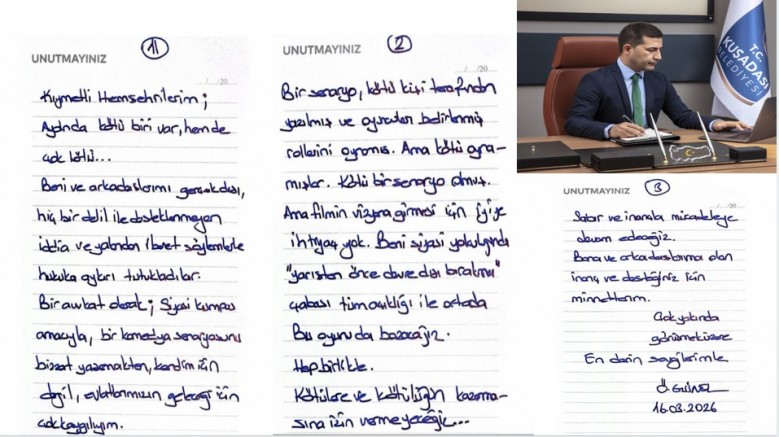 UNUTMAYINIZ
1
/ /20
Kıymetli Hemşehrilerim;
Aydında kötü biri var, hem de
çok kötü...
Beni ve arkadaşlarımı gerçek dışı,
hiç bir delil ile desteklenmeyen
iddia ve yalandan ibaret söylemlerle
hukuka aykırı tutukladılar.
Bir avukat olarak; Siyasi kumpas
amacıyla, bir komedya senaryosunu
bizzat yaşamaktan, kendim için
değil, evlatlarımızın geleceği için
çok kaygılıyım.
UNUTMAYINIZ
2
/ /20
Bir senaryo, kötü kişi tarafından
yazılmış ve oyuncular belirlenmiş
rollerini oynamış. Ama kötü oyna-
mışlar. Kötü bir senaryo olmuş.
Ama filmin vizyona girmesi için iyiye
ihtiyaç yok. Beni siyasi yolculuğunda
"yarıştan önce devre dışı bırakma"
çabası tüm açıklığı ile ortada
Bu oyunu da bozacağız.
Hep birlikte.
Kötülere ve kötülüğün kazanma-
sına izin vermeyeceğiz...
T.C.
KUŞADASI
BELEDİYESİ
UNUTMAYINIZ
3
/ /20
Sabır ve inançla mücadeleye
devam edeceğiz.
Bana ve arkadaşlarıma olan
inanç ve desteğiniz için
minnettarım.
Çok yakında
görüşmek üzere
En derin saygılarımla
Ö. GÜNEL
16.03.2026